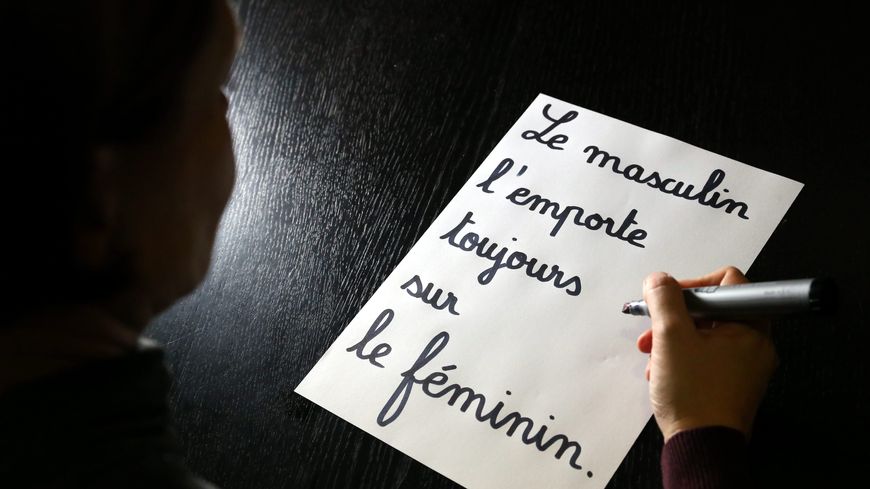 Le masculin
l'emporte
toujours
sur
le féminin.